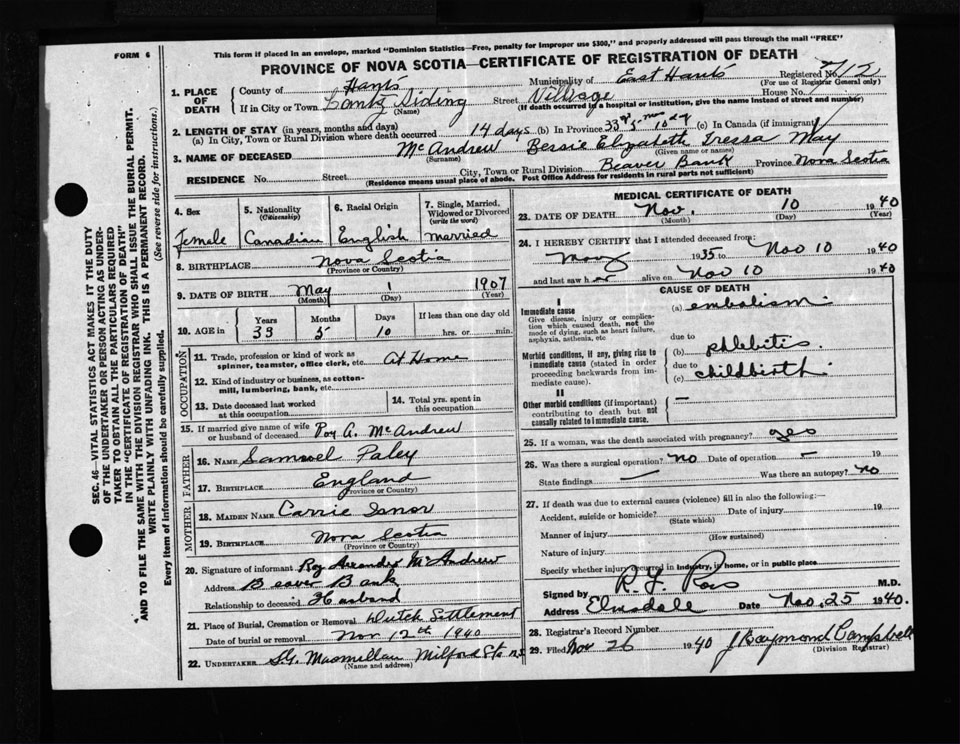 FORM 6
This form if placed in an envelope, marked "Dominion Statistics—Free, penalty for improper use $300," and properly addressed will pass through the mail "FREE"
PROVINCE OF NOVA SCOTIA—CERTIFICATE OF REGISTRATION OF DEATH
Registered No. 712
(For use of Registrar General only)
1. PLACE OF DEATH
County of Hants Municipality of East Hants
If in City or Town Lantz Siding Street Village House No.
(Name) (If death occurred in a hospital or institution, give the name instead of street and number)
2. LENGTH OF STAY (in years, months and days)
(a) In City, Town or Rural Division where death occurred 14 days (b) In Province 33 5 10 (c) In Canada (if immigrant)
3. NAME OF DECEASED McAndrew Bessie Elizabeth Tressa May
(Surname) (Given name or names)
RESIDENCE No. Street City, Town or Rural Division Beaver Bank Province Nova Scotia
(Residence means usual place of abode. Post Office Address for residents in rural parts not sufficient)
4. Sex
Female
5. Nationality
(Citizenship)
Canadian
6. Racial Origin
English
7. Single, Married, Widowed or Divorced
(write the word)
married
8. BIRTHPLACE Nova Scotia
(Province or Country)
9. DATE OF BIRTH May 1 1907
(Month) (Day) (Year)
10. AGE in
Years Months Days If less than one day old
33 5 10 hrs. or min.
OCCUPATION
11. Trade, profession or kind of work as spinner, teamster, office clerk, etc. At Home
12. Kind of industry or business, as cotton-mill, lumbering, bank, etc.
13. Date deceased last worked at this occupation
14. Total yrs. spent in this occupation
15. If married give name of wife or husband of deceased Roy A. McAndrew
FATHER
16. NAME Samuel Paley
17. BIRTHPLACE England
(Province or Country)
MOTHER
18. MAIDEN NAME Carrie Isnor
19. BIRTHPLACE Nova Scotia
(Province or Country)
20. Signature of informant Roy Alexander McAndrew
Address Beaver Bank
Relationship to deceased Husband
21. Place of Burial, Cremation or Removal Dutch Settlement
Date of burial or removal Nov 12th 1940
22. UNDERTAKER Macmillan Milford Sta N.S.
(Name and address)
MEDICAL CERTIFICATE OF DEATH
23. DATE OF DEATH Nov. 10 1940
(Month) (Day) (Year)
24. I HEREBY CERTIFY that I attended deceased from:
May 1935 to Nov 10 1940
and last saw her alive on Nov 10 1940
CAUSE OF DEATH
I
Immediate cause
Give disease, injury or complication which caused death, not the mode of dying, such as heart failure, asphyxia, asthenia, etc.
(a) embolism
due to
Morbid conditions, if any, giving rise to immediate cause (stated in order proceeding backwards from immediate cause).
(b) phlebitis
due to
(c) childbirth
II
Other morbid conditions (if important) contributing to death but not causally related to immediate cause.
—
25. If a woman, was the death associated with pregnancy? yes
26. Was there a surgical operation? no Date of operation — 19
State findings — Was there an autopsy? no
27. If death was due to external causes (violence) fill in also the following:—
Accident, suicide or homicide? Date of injury 19
(State which)
Manner of injury
(How sustained)
Nature of injury
Specify whether injury occurred in industry, in home, or in public place
Signed by M.D.
Address Elmsdale Date Nov. 25 1940.
28. Registrar's Record Number
29. Filed Nov 26 1940 J Raymond Campbell
(Division Registrar)
SEC. 46—VITAL STATISTICS ACT MAKES IT THE DUTY
OF THE UNDERTAKER OR PERSON ACTING AS UNDER-
TAKER TO OBTAIN ALL THE PARTICULARS REQUIRED
IN THE "CERTIFICATE OF REGISTRATION OF DEATH"
AND TO FILE THE SAME WITH THE DIVISION REGISTRAR WHO SHALL ISSUE THE BURIAL PERMIT.
WRITE PLAINLY WITH UNFADING INK. THIS IS A PERMANENT RECORD.
Every item of information should be carefully supplied. (See reverse side for instructions.)